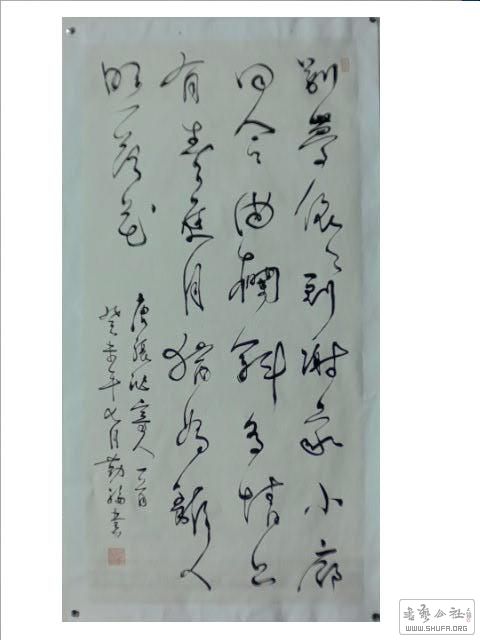 別夢依依到謝家小廊
回合曲欄斜多情只
有春庭月猶為離人
照落花
唐張泌寄人一首
癸未年七月勤書
书艺公社
WWW.SHUFA.ORG